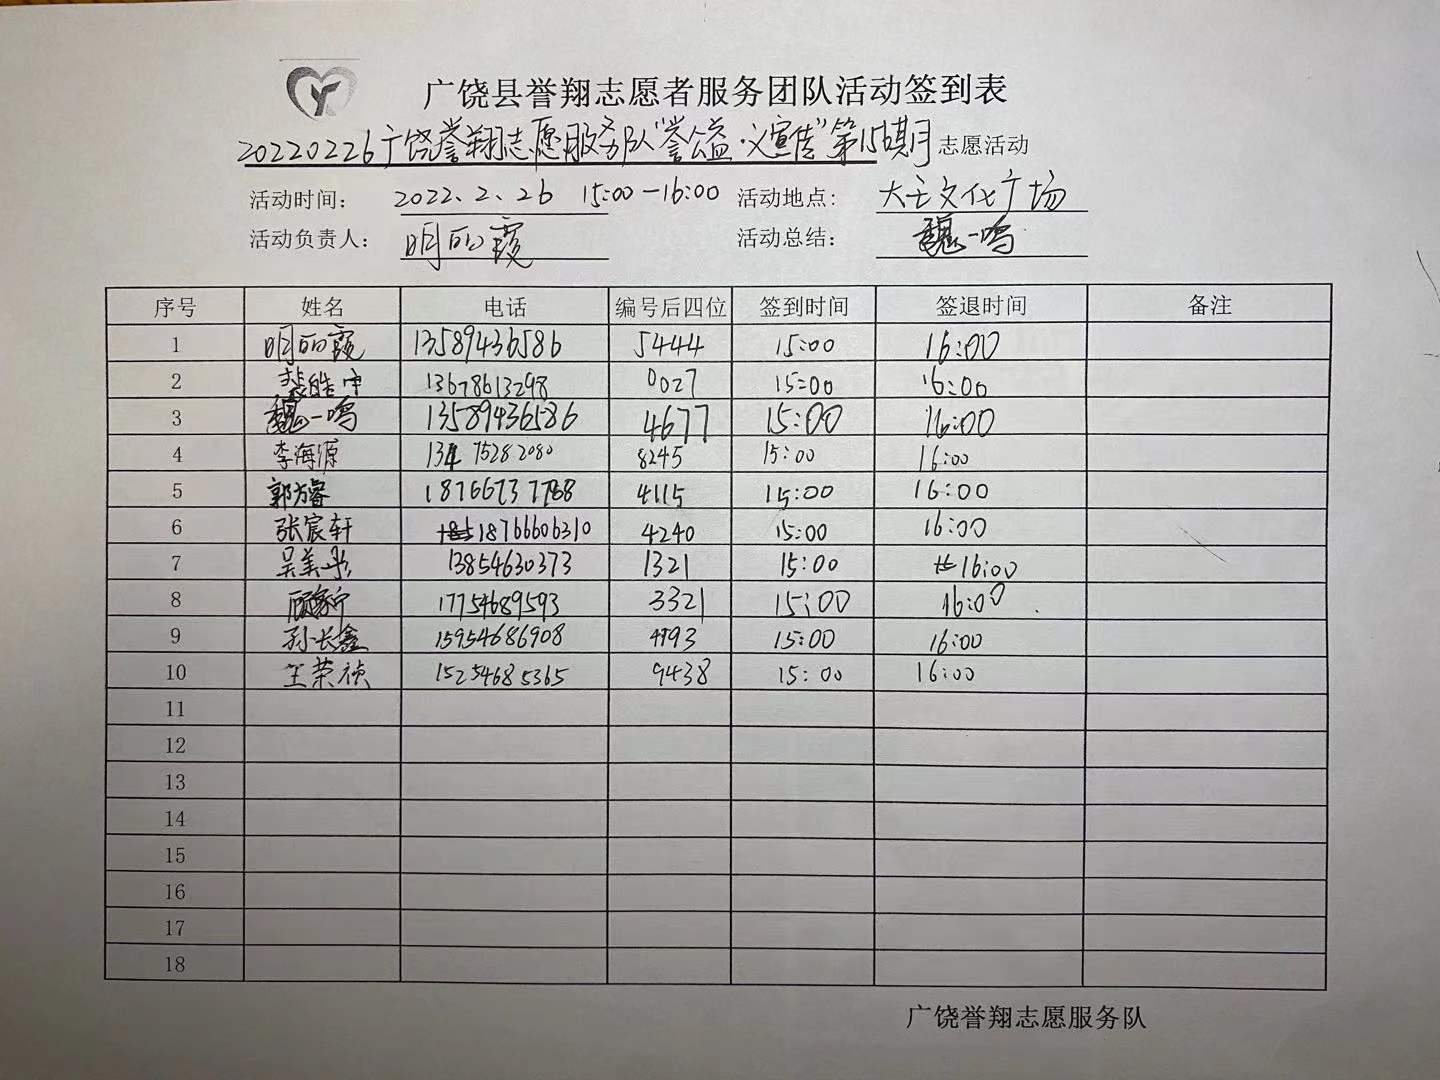 广饶县誉翔志愿者服务团队活动签到表
20220226广饶誉翔志愿服务队"誉公益·义宣传"第156期 志愿活动
活动时间： 2022.2.26 15:00-16:00 活动地点: 大王文化广场
活动负责人： 明丽霞 活动总结： 魏一鸣
序号 姓名 电话 编号后四位 签到时间 签退时间 备注
1 明丽霞 13589436586 5444 15:00 16:00
2 13678613298 0027 15:00 16:00
3 魏一鸣 13589436586 4677 15:00 16:00
4 李海源 13475282080 8245 15:00 16:00
5 郭方睿 18766737768 4115 15:00 16:00
6 张宸轩 18766606310 4240 15:00 16:00
7 吴美彤 13854630373 1321 15:00 16:00
8 顾家宁 17754689593 3321 15:00 16:00
9 孙长鑫 15954686908 15:00 16:00
10 王荣祯 15254685365 9438 15:00 16:00
11
12
13
14
15
16
17
18
广饶誉翔志愿服务队